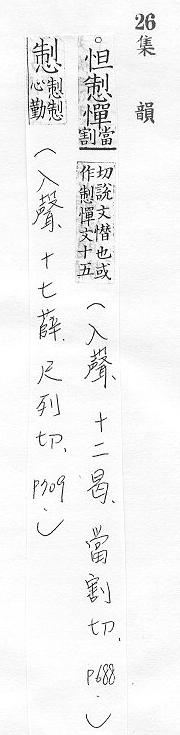 26
集韻
。怛𢠵憚當割切說文憯也或作𢠵憚文十五(入聲、十二曷、當割切、P688.)
𢠵心𢠵𢠵勤(入聲、十七薛、尺列切、P709.)